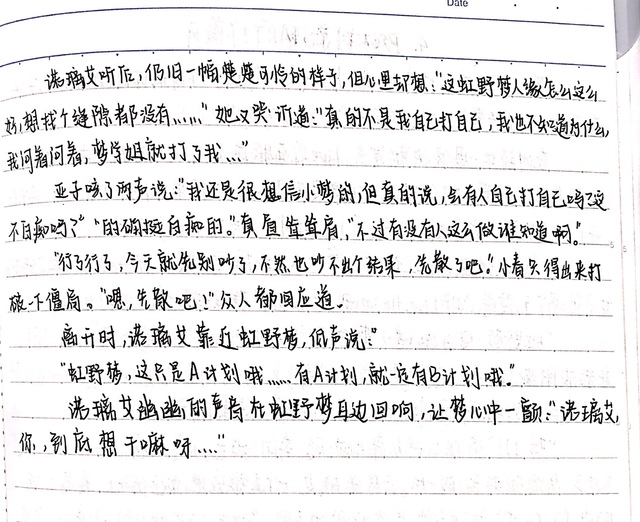 Date
诺璃艾听后，仍旧一幅楚楚可怜的样子，但心里却想："这虹野梦人缘怎么这么
好，想找个缝隙都没有……"她又哭诉道："真的不是我自己打自己，我也不知道为什么，
我问着问着，梦学姐就打了我…"
亚子咳了两声说："我还是很想信小梦的，但真的说，会有人自己打自己吗？这
不白痴吗？""的确挺白痴的。"真昼耸耸肩，"不过有没有人这么做谁知道啊。"
"行了行了，今天就先别吵了，不然也吵不出个结果，先散了吧。"小春只得出来打
破一下僵局。"嗯，先散吧！"众人都回应道。
离开时，诺璃艾靠近虹野梦，低声说："
"虹野梦，这只是A计划哦……有A计划，就一定有B计划哦。"
诺璃艾幽幽的声音在虹野梦耳边回响，让梦心中一颤："诺璃艾，
你，到底想干嘛呀…."